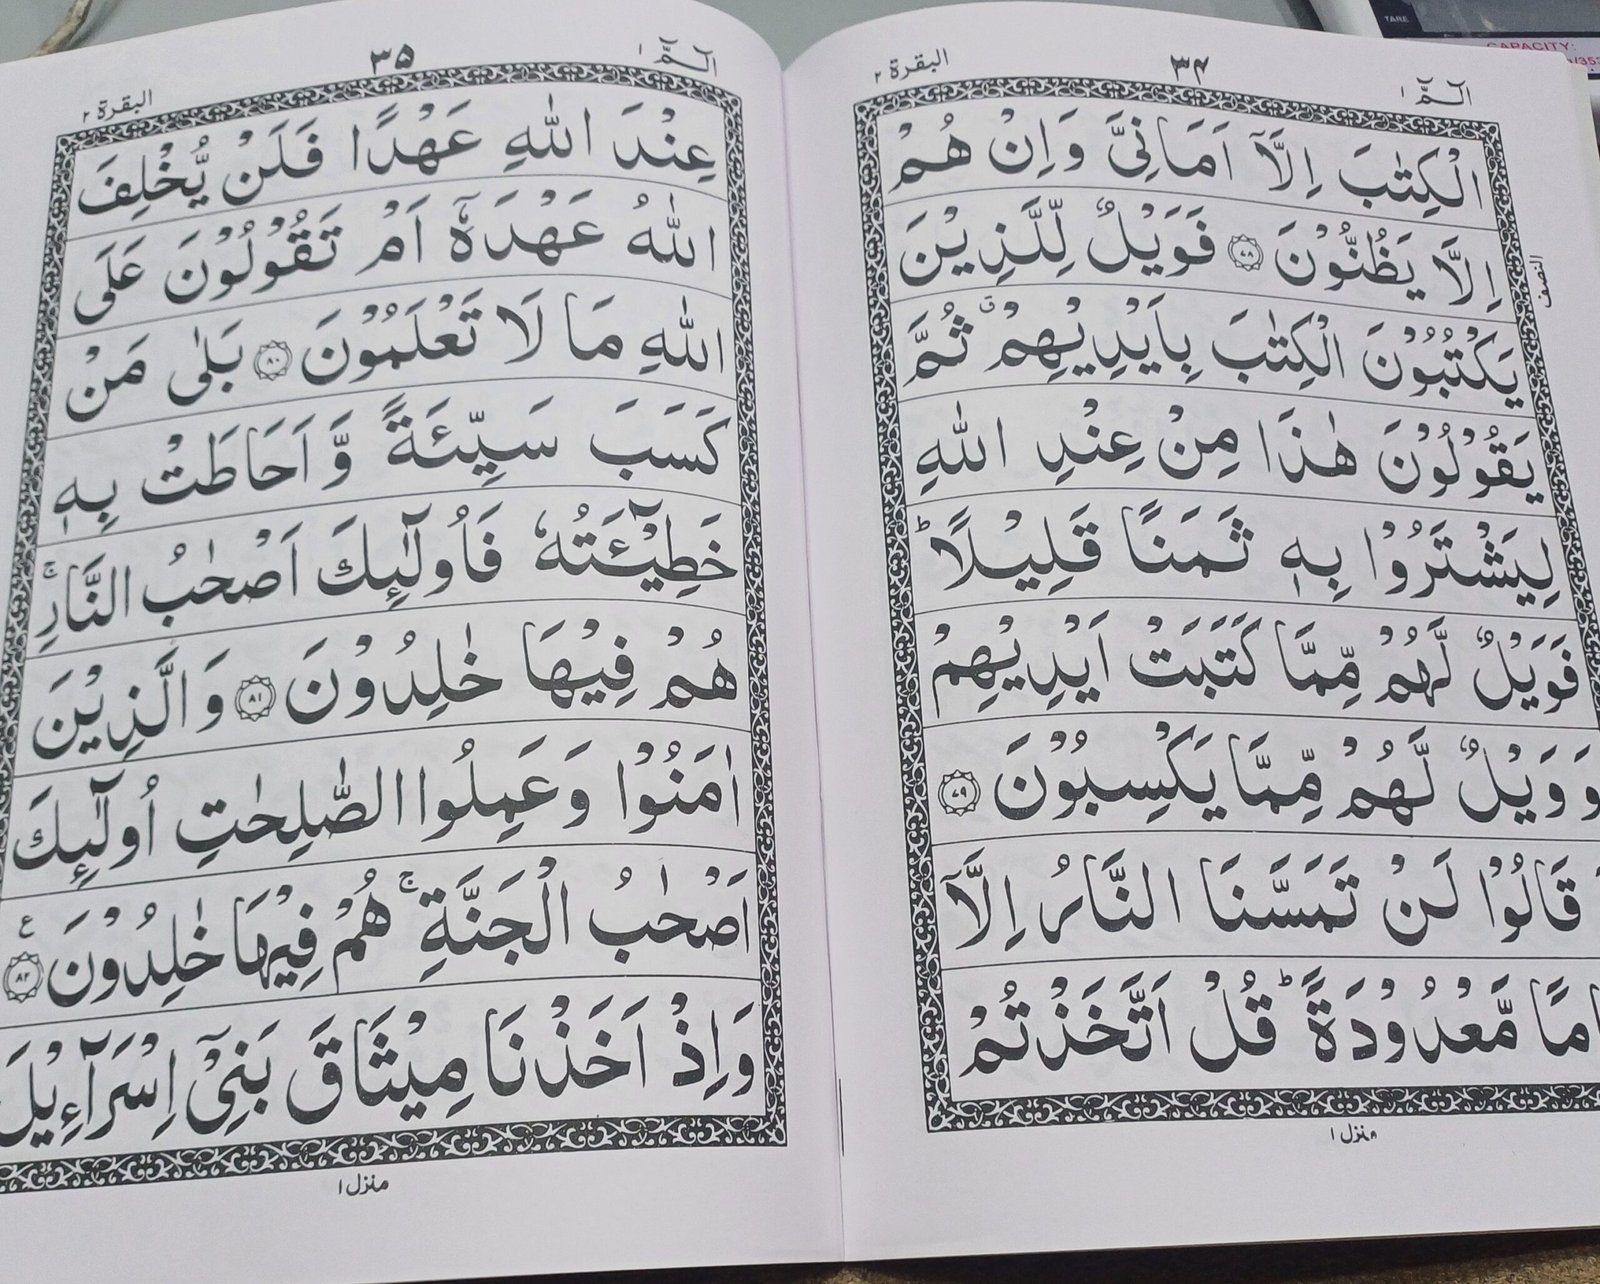 الٓـمّٓ ١
٣٤
البقرة ٢
الْكِتٰبَ اِلَّاۤ اَمَانِیَّ وَاِنْ هُمْ
اِلَّا یَظُنُّوْنَ ۝٧٨ فَوَیْلٌ لِّلَّذِیْنَ
یَكْتُبُوْنَ الْكِتٰبَ بِاَیْدِیْهِمْ ۗ ثُمَّ
یَقُوْلُوْنَ هٰذَا مِنْ عِنْدِ اللّٰهِ
لِیَشْتَرُوْا بِهٖ ثَمَنًا قَلِیْلًا ؕ
فَوَیْلٌ لَّهُمْ مِّمَّا كَتَبَتْ اَیْدِیْهِمْ
وَ وَیْلٌ لَّهُمْ مِّمَّا یَكْسِبُوْنَ ۝٧٩
قَالُوْا لَنْ تَمَسَّنَا النَّارُ اِلَّاۤ
امًا مَّعْدُوْدَةً ؕ قُلْ اَتَّخَذْتُمْ
النصف
منزل ١
الٓـمّٓ ١
٣٥
البقرة ٢
عِنْدَ اللّٰهِ عَهْدًا فَلَنْ یُّخْلِفَ
اللّٰهُ عَهْدَهٗۤ اَمْ تَقُوْلُوْنَ عَلَی
اللّٰهِ مَا لَا تَعْلَمُوْنَ ۝٨٠ بَلٰی مَنْ
كَسَبَ سَیِّئَةً وَّاَحَاطَتْ بِهٖ
خَطِیْٓـَٔتُهٗ فَاُولٰٓىِٕكَ اَصْحٰبُ النَّارِ ۚ
هُمْ فِیْهَا خٰلِدُوْنَ ۝٨١ وَالَّذِیْنَ
اٰمَنُوْا وَعَمِلُوا الصّٰلِحٰتِ اُولٰٓىِٕكَ
اَصْحٰبُ الْجَنَّةِ ۚ هُمْ فِیْهَا خٰلِدُوْنَ ۝٨٢ ع
وَاِذْ اَخَذْنَا مِیْثَاقَ بَنِیْۤ اِسْرَآءِیْلَ
منزل ١
TARE
CAPACITY: